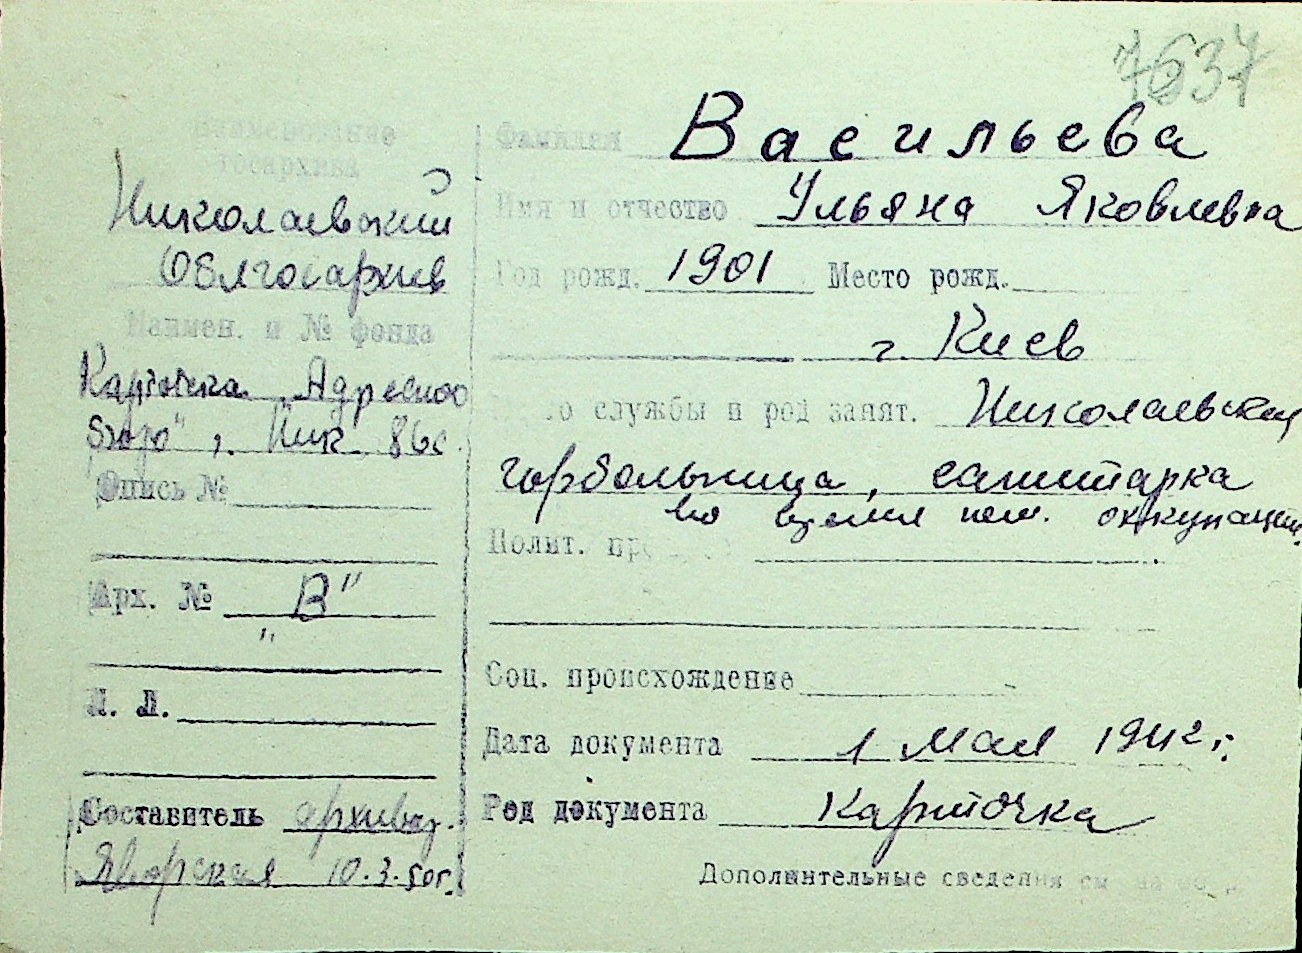 7637
Наименование
госархива
Николаевский
Облгосархив
Наимен. и № фонда
Картотека "Адресного
бюро" г. Ник.
Опись №
Арх. № "В"
Л. Л.
Составитель архивар.
Яворская 10.3.50г.
Фамилия Васильева
Имя и отчество Ульяна Яковлевна
Год рожд. 1901 Место рожд.
г. Киев
службы и род занят. Николаевская
горбольница, санитарка
во время нем. оккупации.
Полит.
Соц. происхождение
Дата документа 1 мая 1942 г.
Род документа карточка
Дополнительные сведения см на об